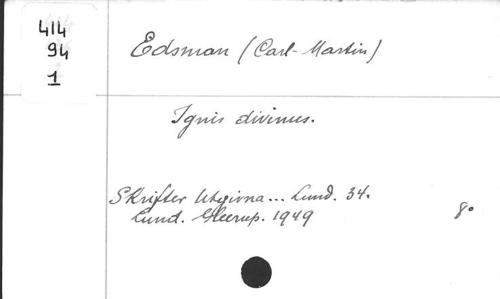 414
94
1
Edsman (Carl-Martin)
Ignis divinus.
Skrifter Utgivna... Lund. 34.
Lund. Gleerup. 1949
8°